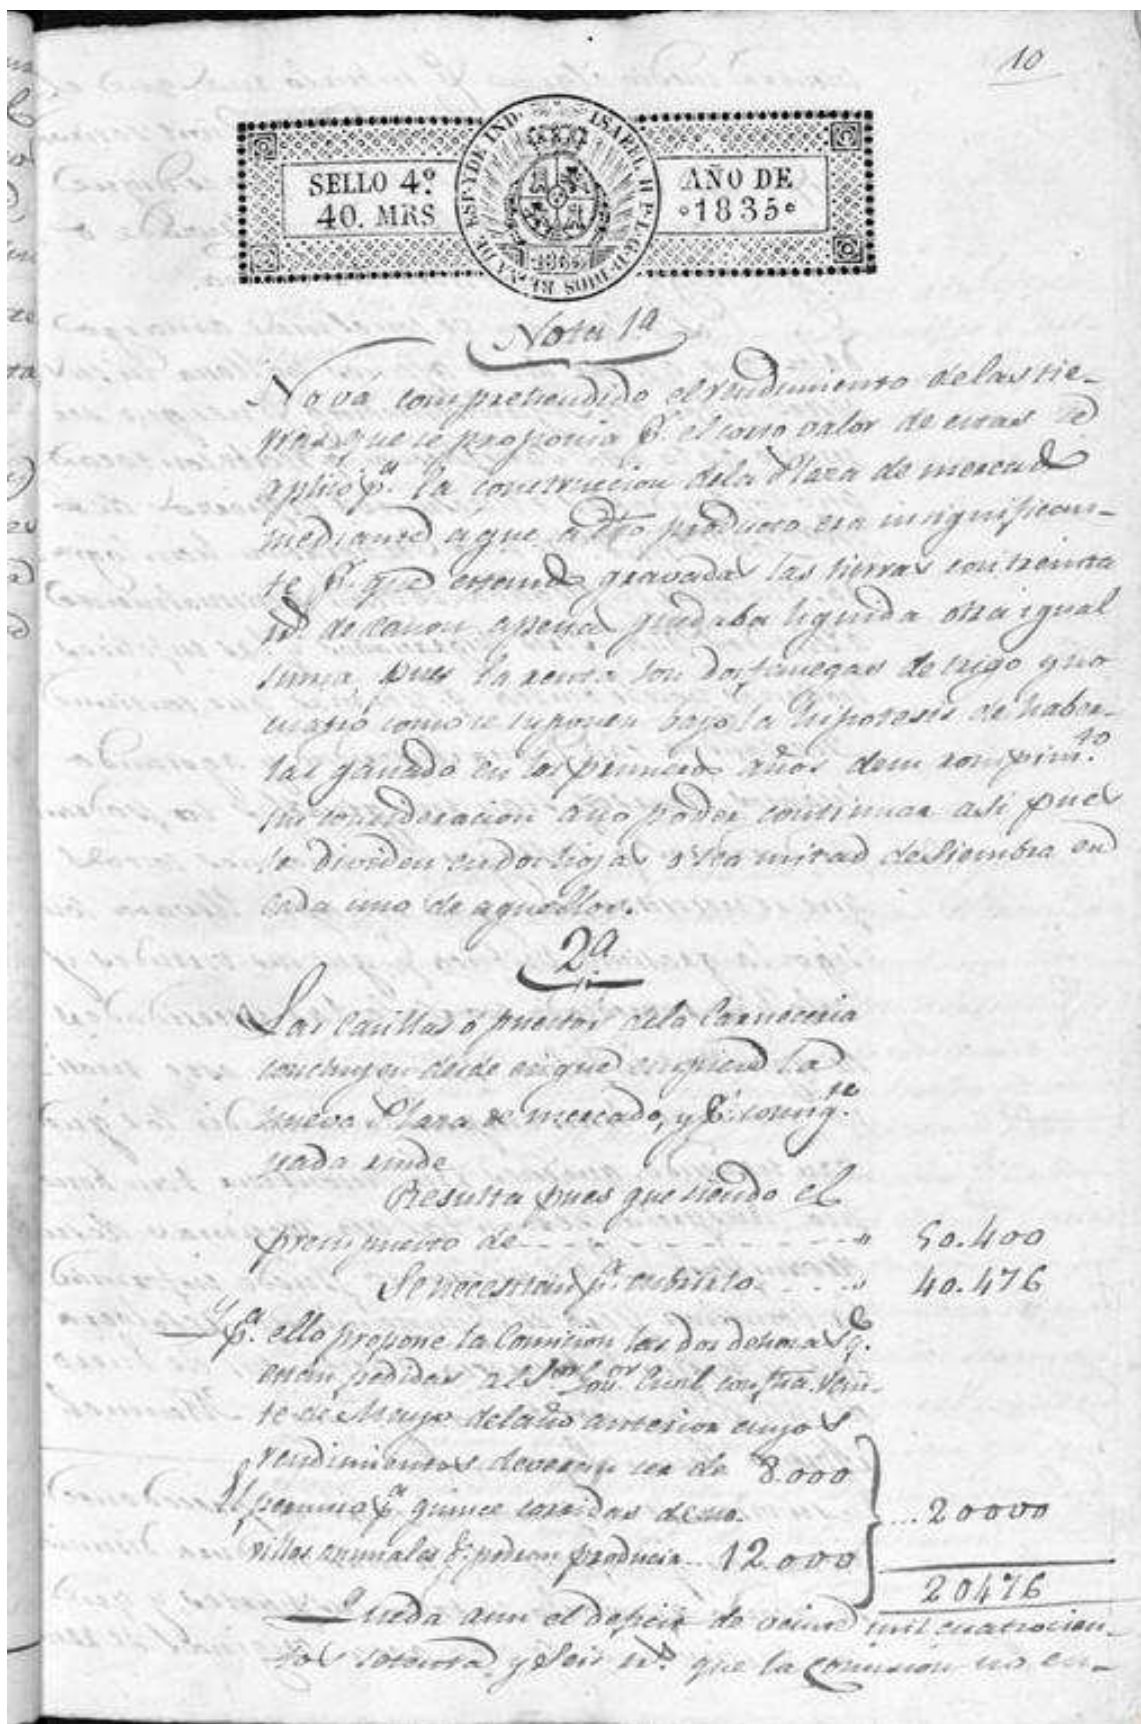 10
SELLO 4º
40. MRS
ISABEL II P. L. G. D DIOS REYNA DE ESP. Y DE IND.
1835
AÑO DE
1835
Nota 1ª
No va comprehendido el rendimiento de las tie-
rras que se proponia pr. el corto valor de estas se
aplicó pª. la construccion de la Plaza de mercado
mediante a que dho producto era insignifican-
te pr. qe estando gravadas las tierras con treinta
rs. de canon apenas quedaba liquida otra igual
suma, pues la renta son dos fanegas de trigo y no
cuatro como se suponen bajo la hipotesis de haber-
las ganado en los primeros años de su rompimto.
sin consideracion a no poder continuar asi pues
se dividen en dos hojas o sea mitad de siembra en
cada uno de aquellos.
2ª
Las Casillas o puestos de la Carneceria
concluyen desde que empiece la
nueva Plaza de mercado, y pr. consigte.
nada rinde
Resulta pues que siendo el
presupuesto de " 50.400
Se necesitan pª. cubrirlo " 40.476
Y pª. ello propone la Comision las dos dehesas q.
estan pedidas al Sor. Gor. Civil con fha. vein-
te de Mayo del año anterior cuyos
rendimientos deveran ser de 8.000
El permiso pª. quince corridas de no-
villos anuales qe. podran producir.. 12.000
... 20000
20476
Queda aun el deficit de veinte mil cuatrocien-
tos setenta y seis rs. que la comision no en-